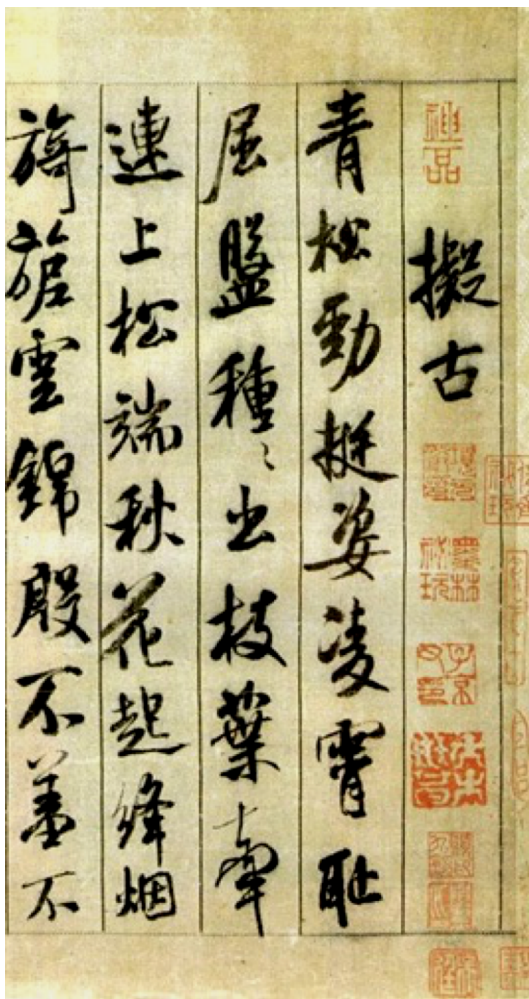 神品
擬古
墨林秘玩
子京父印
青松勁挺姿凌霄耻
屈盤種〻出枝葉牽
連上松端秋花起絳烟
旖旎雲錦殷不羞不